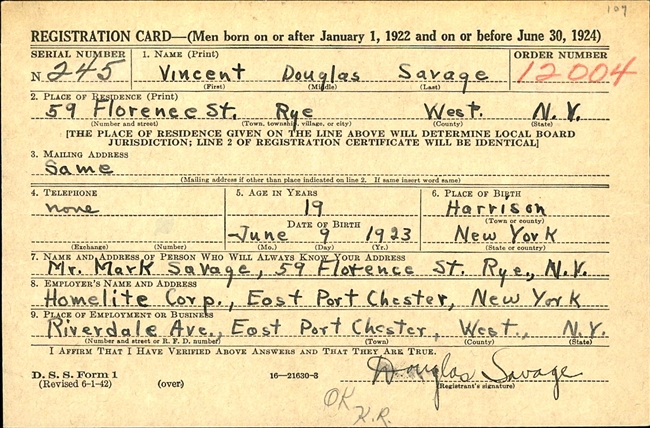 107
REGISTRATION CARD—(Men born on or after January 1, 1922 and on or before June 30, 1924)
SERIAL NUMBER 1. NAME (Print) ORDER NUMBER
N 245 Vincent Douglas Savage 12004
(First) (Middle) (Last)
2. PLACE OF RESIDENCE (Print)
59 Florence St. Rye West. N.Y.
(Number and street) (Town, township, village, or city) (County) (State)
[THE PLACE OF RESIDENCE GIVEN ON THE LINE ABOVE WILL DETERMINE LOCAL BOARD
JURISDICTION; LINE 2 OF REGISTRATION CERTIFICATE WILL BE IDENTICAL]
3. MAILING ADDRESS
Same
(Mailing address if other than place indicated on line 2. If same insert word same)
4. TELEPHONE 5. AGE IN YEARS 6. PLACE OF BIRTH
none 19 Harrison
(Town or county)
DATE OF BIRTH
June 9 1923 New York
(Exchange) (Number) (Mo.) (Day) (Yr.) (State or country)
7. NAME AND ADDRESS OF PERSON WHO WILL ALWAYS KNOW YOUR ADDRESS
Mr. Mark Savage, 59 Florence St. Rye., N.Y.
8. EMPLOYER'S NAME AND ADDRESS
Homelite Corp., East Port Chester, New York
9. PLACE OF EMPLOYMENT OR BUSINESS
Riverdale Ave., East Port Chester, West., N.Y.
(Number and street or R. F. D. number) (Town) (County) (State)
I AFFIRM THAT I HAVE VERIFIED ABOVE ANSWERS AND THAT THEY ARE TRUE.
D. S. S. Form 1 Douglas Savage
(Revised 6-1-42) (over) 16—21630-3 (Registrant's signature)
OK
K.R.